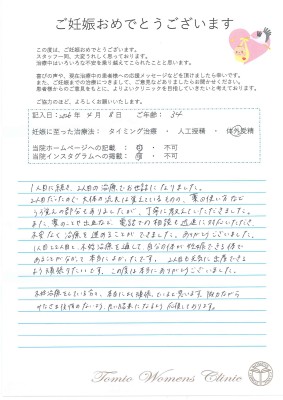 ご妊娠おめでとうございます
この度は、ご妊娠おめでとうございます。
スタッフ一同、大変うれしく思っております。
治療中はいろいろな不安を乗り越えてこられたことと思います。
喜びの声や、現在治療中の患者様への応援メッセージなどを頂けましたら幸いです。
また、ご妊娠までの治療につきまして、ご意見などありましたらお聞かせください。
患者様からのご意見をもとに、よりよいクリニックを目指していきたいと考えております。
ご協力のほど、よろしくお願いいたします。
記入日: 年 4月 8日 ご年齢: 34
妊娠に至った治療法: タイミング治療 ・ 人工授精 ・ 体外受精
当院ホームページへの記載: 可 ・ 不可
当院インスタグラムへの掲載: 可 ・ 不可
1人目に続き、2人目の治療でお世話になりました。
2人目だったので大体の流れは覚えているものの、薬の使い方など
うろ覚えの部分もありましたが、丁寧に教えていただきました。
また、急なことで出血など、電話での相談も迅速に対応いただき、
不安なく治療を進めることができました。ありがとうございました。
1人目も2人目も、不妊治療を通して自分の体が妊娠できる体で
あることが分かって本当によかったです。2人目も元気に出産できる
よう頑張りたいです。この度は本当にありがとうございました。
不妊治療をしている方々、本当に毎日頑張っていると思います。
良い結果になるよう応援しております。
Tomio Womens Clinic